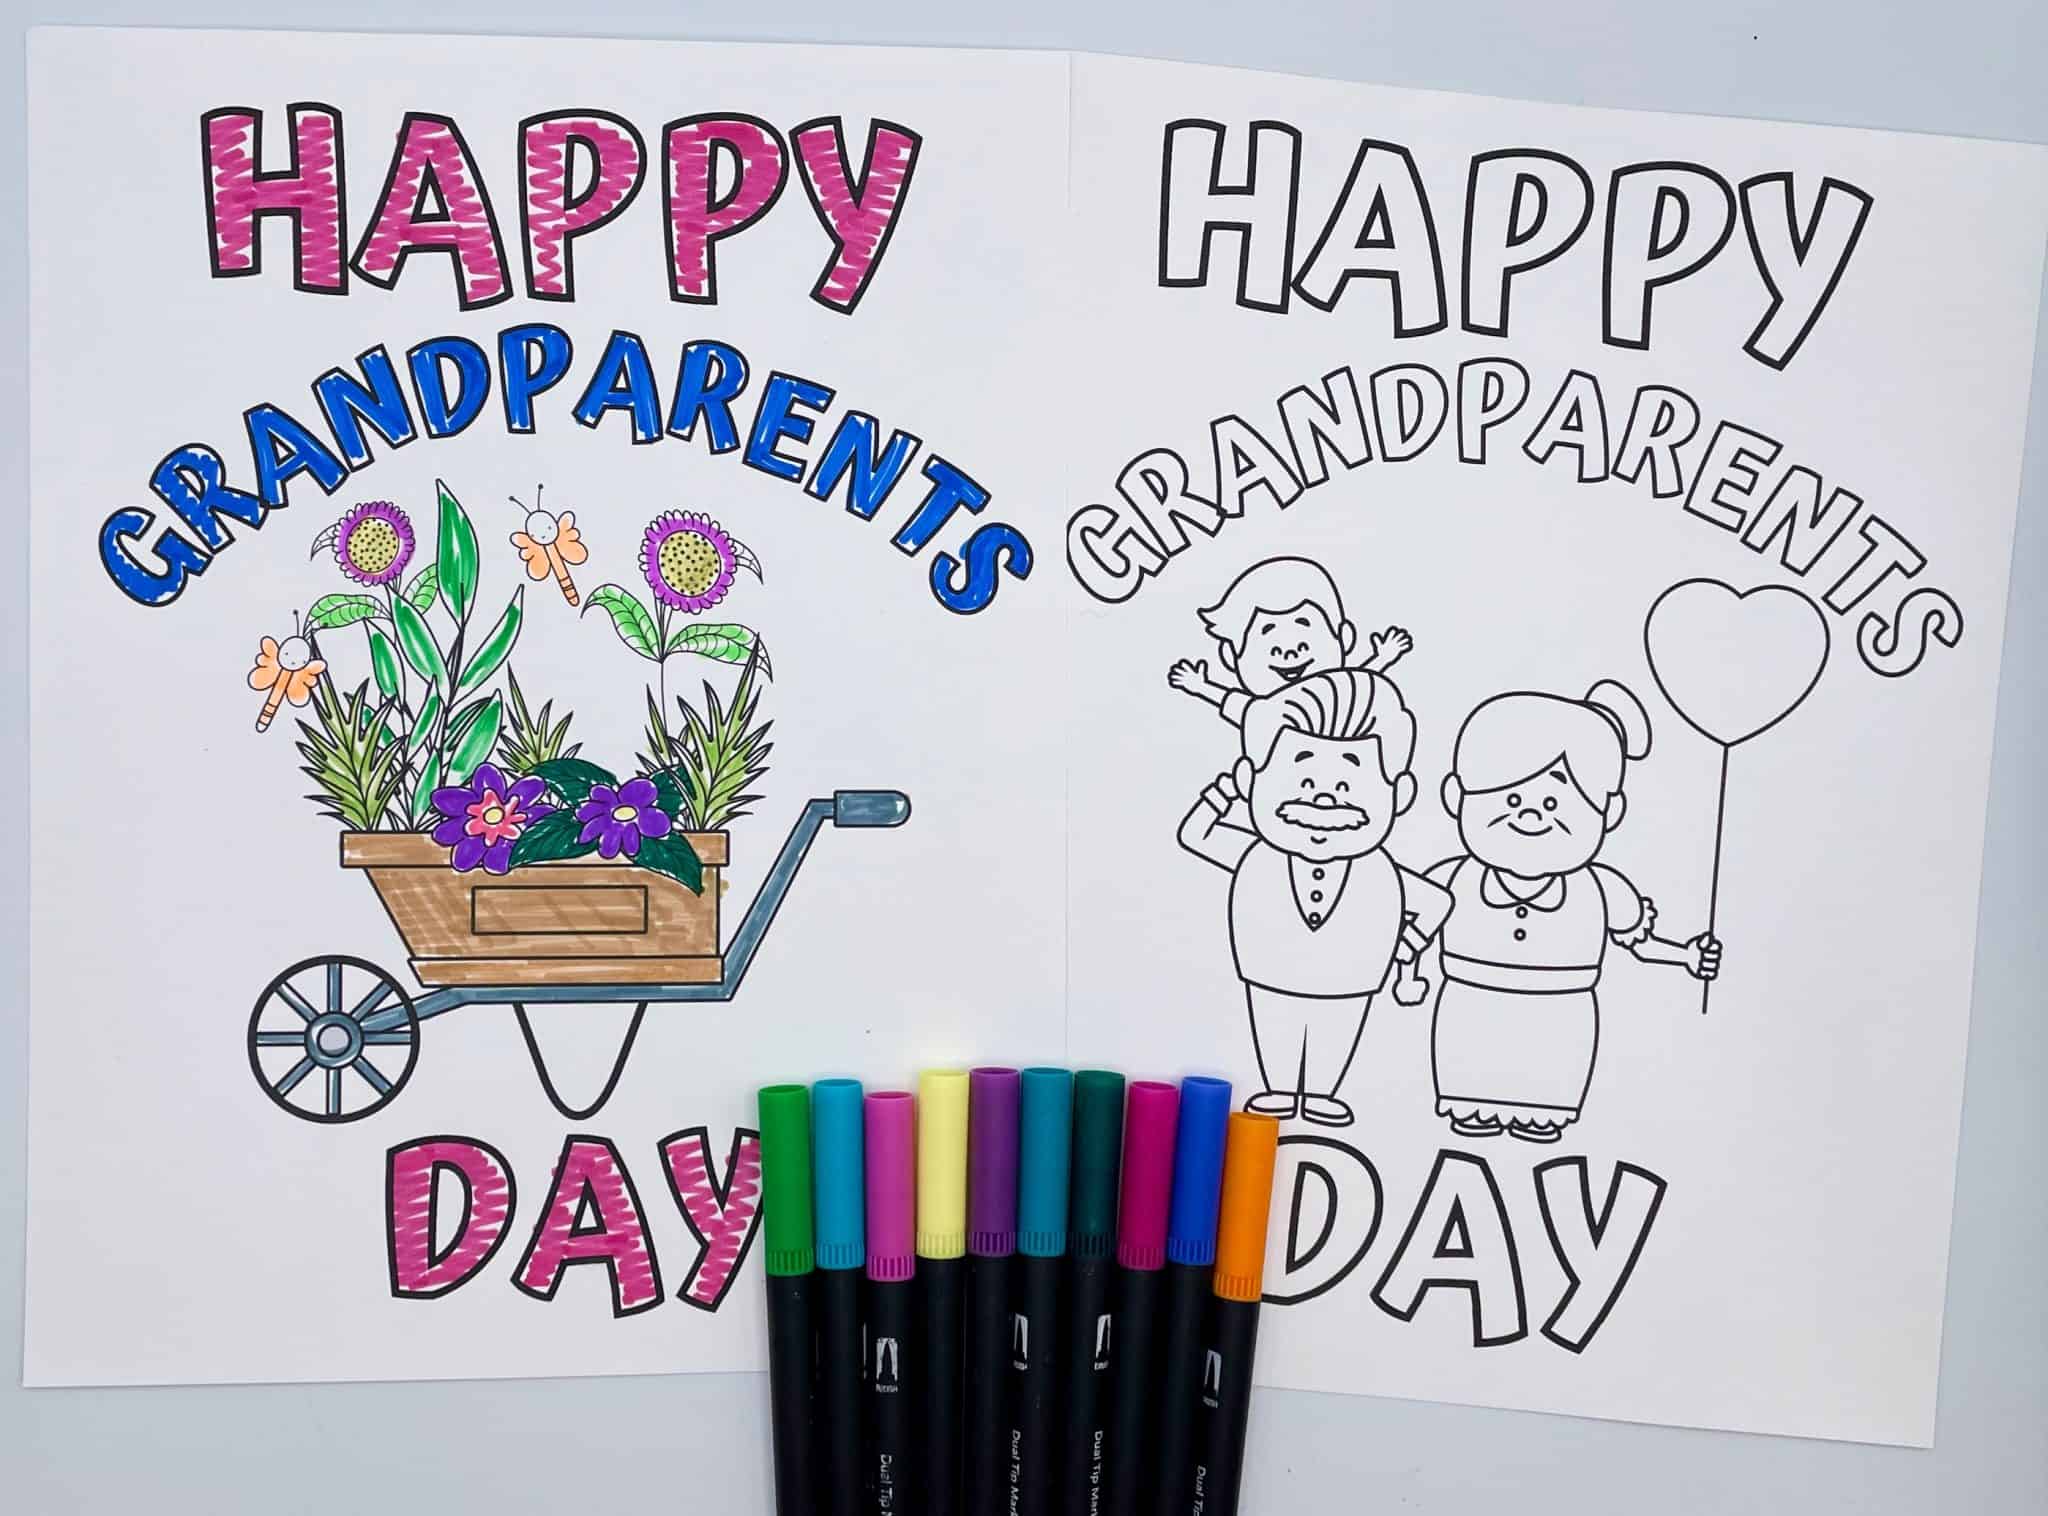 HAPPY
GRANDPARENTS
DAY
HAPPY
GRANDPARENTS
DAY
Dual Tip
Dual Tip Mark
Dual Tip Mar
Dual Tip